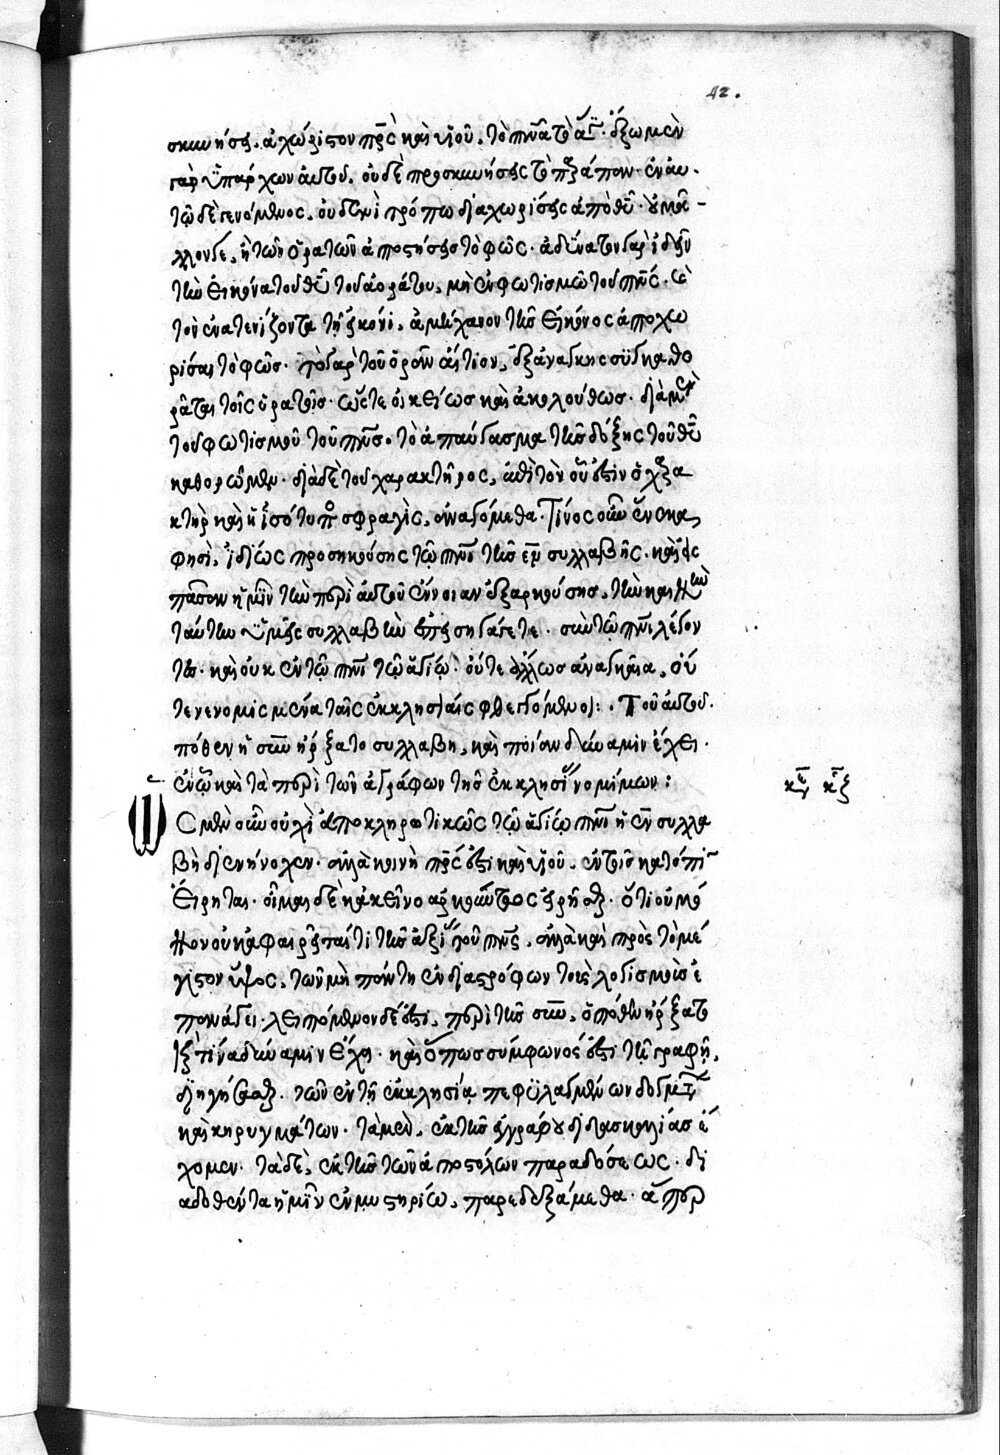 42.
σκυνήσῃς. ἀχώριστον πρς καὶ υἱοῦ. τὸ πνα τὸ ἅγ. ἔξω μὲν
γὰρ ὑπάρχων αὐτοῦ. οὐδὲ προσκυνήσεις τὸ παράπαν· ἐν αυ
τῶ δὲ γενόμενος. οὐδενὶ τρόπω διαχωρίσεις ἀπὸ θυ. οὐ μᾶ
λλόν γε, ἢ τῶν ὁρατῶν ἀποστήσεις τὸ φῶς· ἀδύνατον γὰρ ἰδεῖν
τὴν εἰκόνα τοῦ θυ τοῦ ἀοράτου, μὴ ἐν φωτισμῶ τοῦ πνς. καὶ
τὸν ἐνατενίζοντα τῆ εἰκόνι. ἀμήχανον τῆς εἰκόνος ἀποχω
ρίσαι τὸ φῶς· τὸ γὰρ τοῦ ὁρᾶν αἴτιον. ἐξ ἀνάγκης συγκαθο
ρᾶται τοῖς ὁρατοῖς· ὥστε οἰκείως καὶ ἀκολούθως· διὰ μὲν
τοῦ φωτισμοῦ τοῦ πνς. τὸ ἀπαύγασμα τῆς δόξης τοῦ θυ
καθορῶμεν· διὰ δὲ τοῦ χαρακτῆρος, ἐπὶ τὸν οὗ ἐστιν ὁ χαρα
κτὴρ καὶ ἡ ἰσότυπος σφραγὶς, ἀναγόμεθα. Τίνος οὖν ἕνεκα,
φησὶ, ἰδίως προσηκούσης τῶ πνι τῆς ἐν συλλαβῆς. καὶ εἰς
πᾶσαν ἡμῖν τὴν περὶ αὐτοῦ ἔννοιαν ἐξαρκούσης. τὴν καινὴν
ταύτην ὑμεῖς συλλαβὴν ἐπεισηγάγετε. σὺν τῶ πνι λέγον
τες. καὶ οὐκ ἐν τῶ πνι τῶ ἁγίω· οὔτε ὅλως ἀναγκαῖα, οὔ
τε νενομισμένα ταῖς ἐκκλησίαις φθεγγόμενοι:. Τοῦ αὐτοῦ.
πόθεν ἡ σὺν ἤρξατο συλλαβὴ, καὶ ποίαν δύναμιν ἔχει.
ἐν ὧ καὶ τὰ περὶ τῶν ἀγράφων τῆς ἐκκλησίας νομίμων:
Ὡς μὲν οὖν οὐχὶ ἀποκληρωτικῶς τῶ ἁγίω πνι ἡ ἐν συλλα
βὴ διενήνοχεν. ἀλλὰ κοινὴ πρς ἐστι καὶ υἱοῦ. ἐν τοῖς κατόπιν
εἴρηται. οἶμαι δὲ κἀκεῖνο ἀρκούντως εἰρῆσθαι. ὅτι οὐ μό
νον οὐκ ἀφαιρεῖταί τι τῆς ἀξίας τοῦ πνς. ἀλλὰ καὶ πρὸς τὸ μέ
γιστον ὕψος. τῶν μὴ πάντη ἐνδιαστρόφων τοῖς λογισμοῖς ἐ
πανάγει. λειπόμενον δέ ἐστι, περὶ τῆς σὺν, ὁπόθεν ἤρξατο
καὶ τίνα δύναμιν ἔχει. καὶ ὅπως σύμφωνός ἐστι τῆ γραφῆ,
διηγήσασθαι. τῶν ἐν τῆ ἐκκλησία πεφυλαγμένων δογμάτων
καὶ κηρυγμάτων. τὰ μὲν, ἐκ τῆς ἐγγράφου διδασκαλίας ἔ
χομεν. τὰ δὲ, ἐκ τῆς τῶν ἀποστόλων παραδόσεως. δι
αδοθέντα ἡμῖν ἐν μυστηρίω, παρεδεξάμεθα. ἅπερ